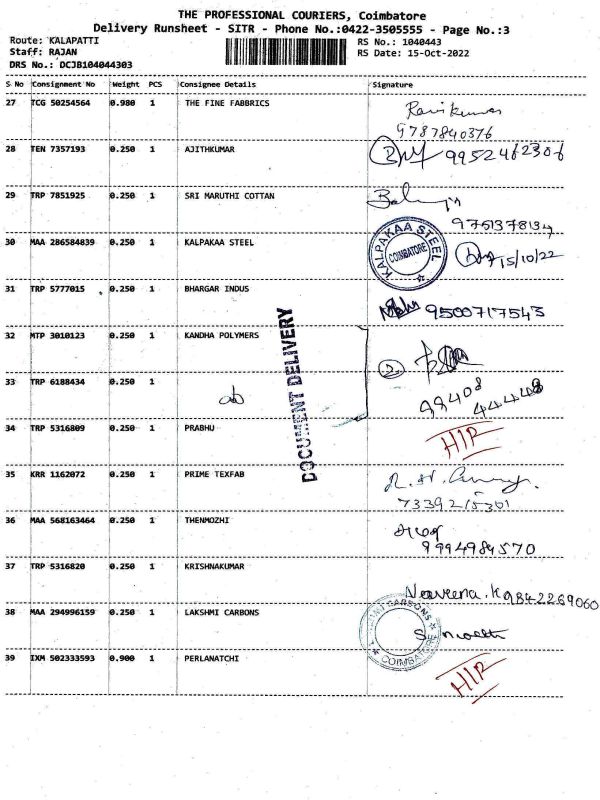 THE PROFESSIONAL COURIERS, Coimbatore
Delivery Runsheet - SITR - Phone No.:0422-3505555 - Page No.:3
Route: KALAPATTI RS No.: 1040443
Staff: RAJAN RS Date: 15-Oct-2022
DRS No.: DCJB104044303
S No Consignment No Weight PCS Consignee Details Signature
27 TCG 50254564 0.980 1 THE FINE FABBRICS Ravikumar
9787840376
28 TEN 7357193 0.250 1 AJITHKUMAR 9952462306
29 TRP 7851925 0.250 1 SRI MARUTHI COTTAN
9751378134
30 MAA 286584839 0.250 1 KALPAKAA STEEL KALPAKAA STEEL COIMBATORE 15/10/22
31 TRP 5777015 0.250 1 BHARGAR INDUS 9500717543
32 MTP 3010123 0.250 1 KANDHA POLYMERS
DOCUMENT DELIVERY
33 TRP 6188434 0.250 1 do 99408
44448
34 TRP 5316809 0.250 1 PRABHU HIP
35 KRR 1162072 0.250 1 PRIME TEXFAB
7339215301
36 MAA 568163464 0.250 1 THENMOZHI
9994984570
37 TRP 5316820 0.250 1 KRISHNAKUMAR Naveena.K 9842269060
38 MAA 294996159 0.250 1 LAKSHMI CARBONS CARBONS COIMBATORE
39 IXM 502333593 0.900 1 PERLANATCHI HIP